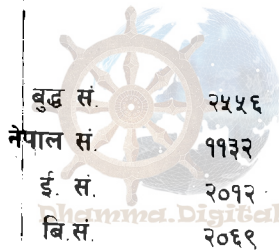 बुद्ध सं. २५५६
नेपाल सं. ११३२
ई. सं. २०१२
बि.सं. २०६९
Dhamma.Digital